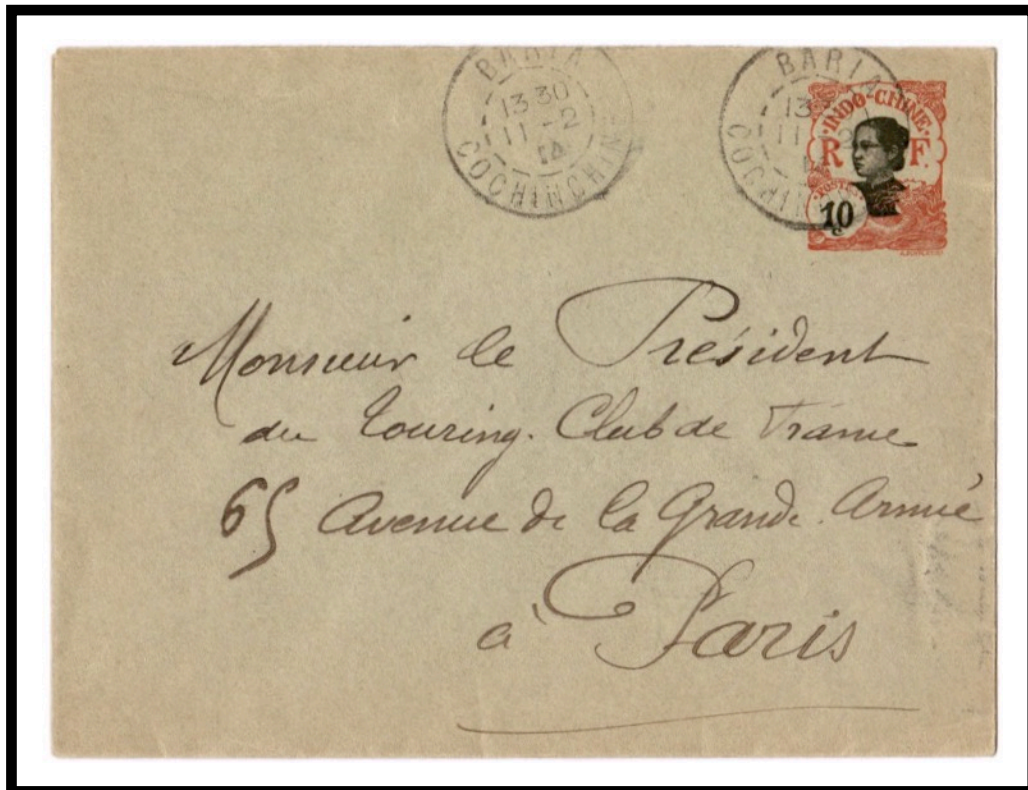 BARIA
13 30
11 -2
14
COCHINCHINE
BARIA
13
11 -2
14
COCHIN
INDO-CHINE
R F.
POSTES
10
c
Monsieur le Président
du Touring-Club de France
65 Avenue de la Grande Armée
à Paris